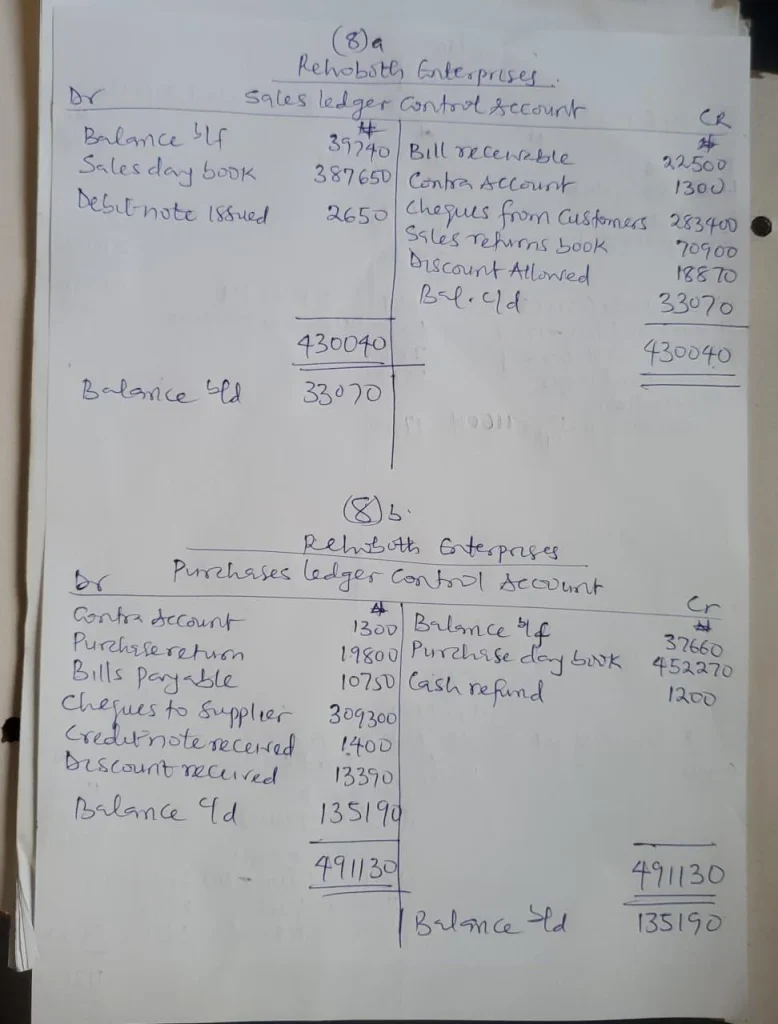 (8)a
Rehoboth Enterprises.
Dr Sales ledger Control Account CR
₦ ₦
Balance b/f 39740 Bill receivable 22500
Sales day book 387650 Contra Account 1300
Debit note Issued 2650 Cheques from Customers 283400
Sales returns book 70900
Discount Allowed 18870
Bal. c/d 33070
430040 430040
Balance b/d 33070
(8)b.
Rehoboth Enterprises
Dr Purchases ledger Control Account Cr
₦ ₦
Contra Account 1300 Balance b/f 37660
Purchase return 19800 Purchase day book 452270
Bills payable 10750 Cash refund 1200
Cheques to Supplier 309300
Credit note received 1400
Discount received 13390
Balance c/d 135190
491130 491130
Balance b/d 135190